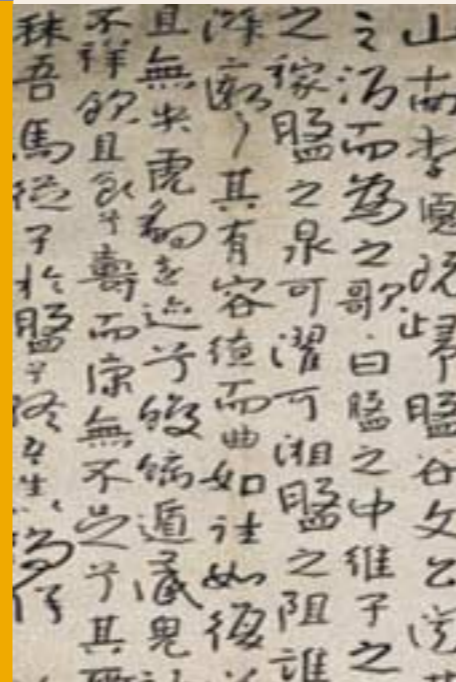 山南李愿既歸盤谷文公送
之酒而為之歌曰盤之中維子之
之稼盤之泉可濯可湘盤之阻誰
深廓其有容繚而曲如往如復
且無央虎豹遠迹兮蛟龍遁藏鬼
不祥飲且食兮壽而康無不足兮其所
秣吾馬從子於盤兮終吾生以徜徉